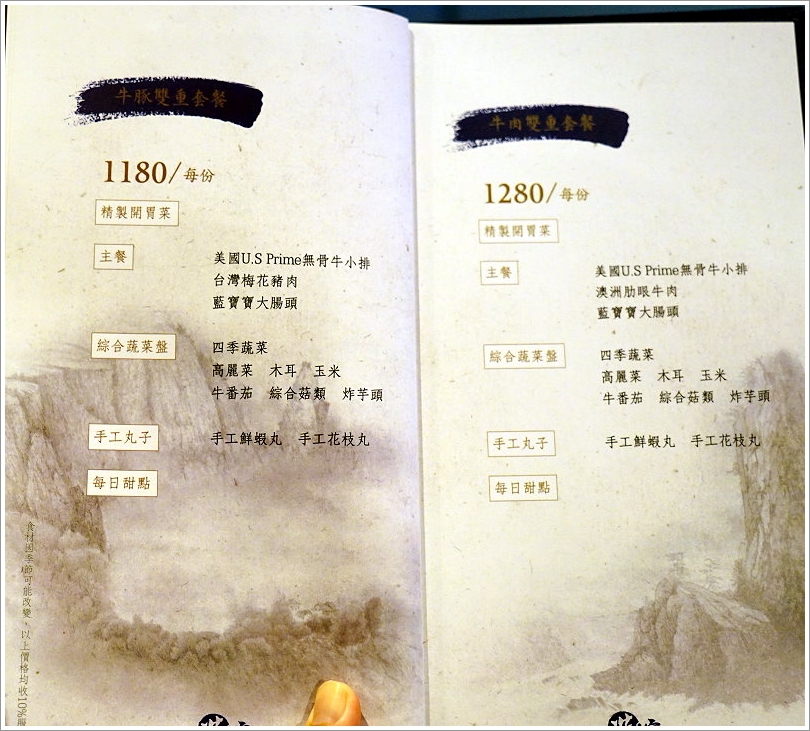 牛豚雙重套餐
1180/每份
精製開胃菜
主餐
美國U.S Prime無骨牛小排
台灣梅花豬肉
藍寶寶大腸頭
綜合蔬菜盤
四季蔬菜
高麗菜 木耳 玉米
牛番茄 綜合菇類 炸芋頭
手工丸子
手工鮮蝦丸 手工花枝丸
每日甜點
食材因季節可能改變，以上價格均收10%服
牛肉雙重套餐
1280/每份
精製開胃菜
主餐
美國U.S Prime無骨牛小排
澳洲肋眼牛肉
藍寶寶大腸頭
綜合蔬菜盤
四季蔬菜
高麗菜 木耳 玉米
牛番茄 綜合菇類 炸芋頭
手工丸子
手工鮮蝦丸 手工花枝丸
每日甜點